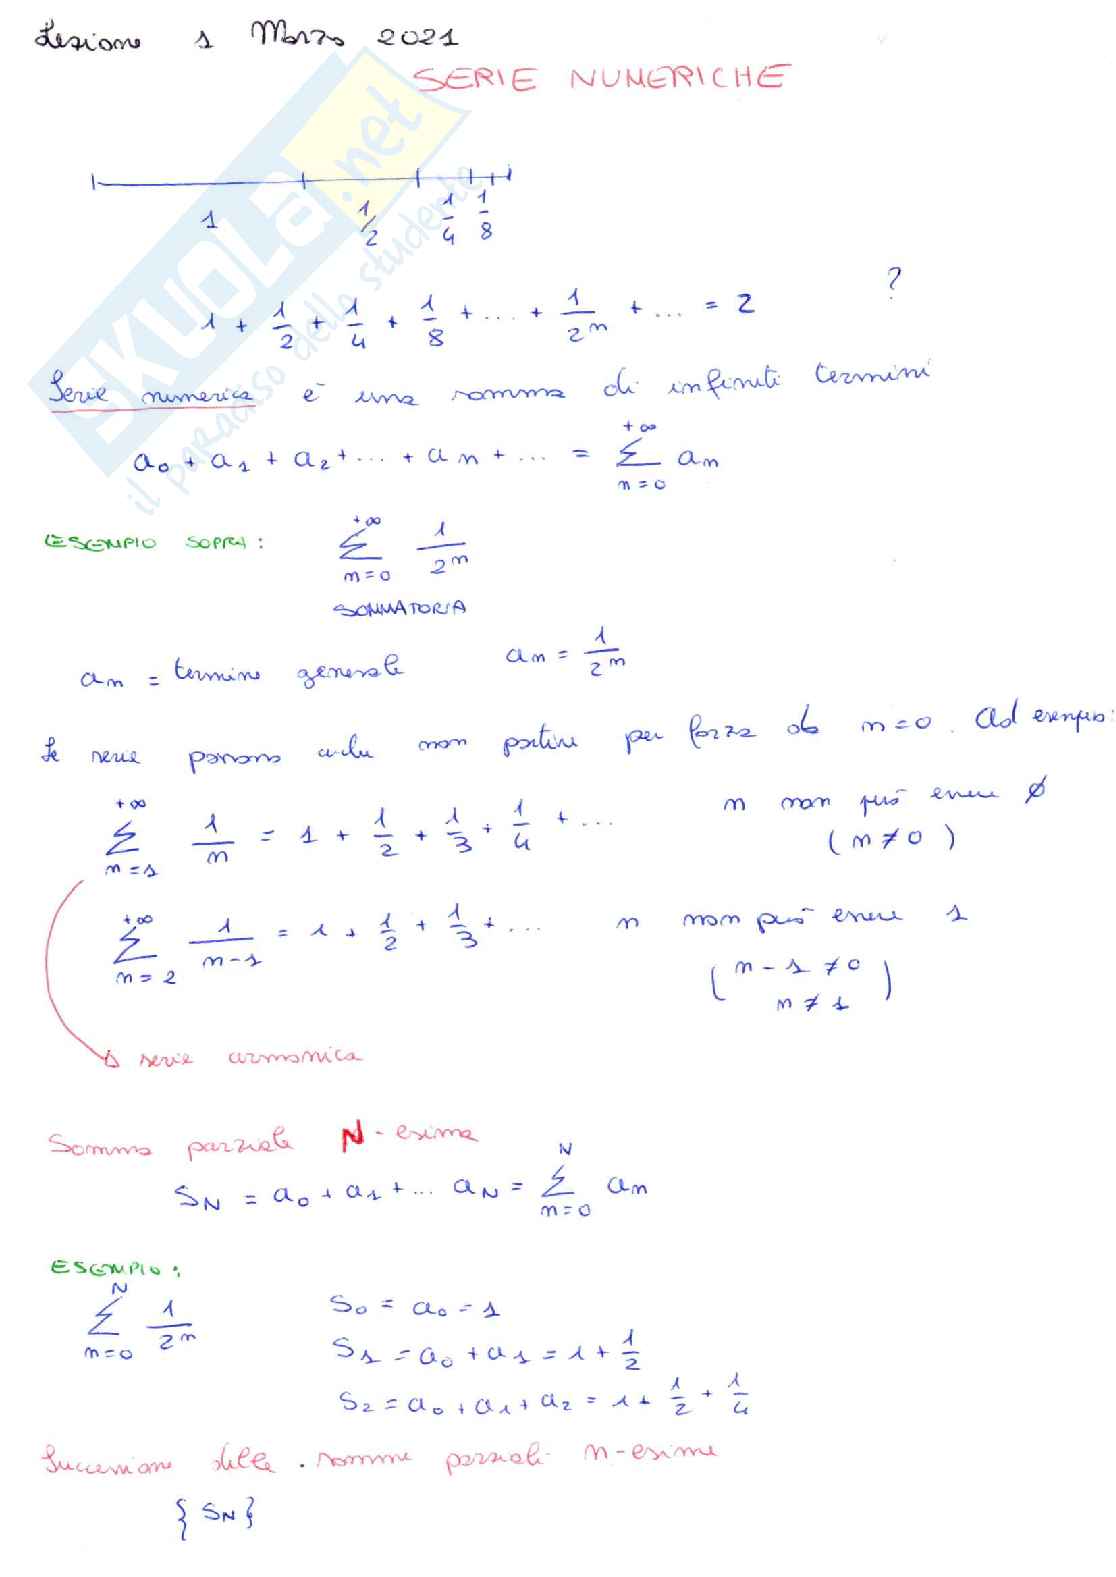 Lezione 1 Marzo 2021
SERIE NUMERICHE
SKUOLA.net
il paradiso dello studente
1 1/2 1/4 1/8
1 + 1/2 + 1/4 + 1/8 + ... + 1/2^n + ... = 2 ?
Serie numerica è una somma di infiniti termini
a_0 + a_1 + a_2 + ... + a_n + ... = Σ_{n=0}^{+∞} a_n
ESEMPIO SOPRA: Σ_{n=0}^{+∞} 1/2^n
SOMMATORIA
a_n = termine generale a_n = 1/2^n
Le serie possono anche non partire per forza da n=0. Ad esempio:
Σ_{n=1}^{+∞} 1/n = 1 + 1/2 + 1/3 + 1/4 + ... n non può essere 0
(n≠0)
Σ_{n=2}^{+∞} 1/(n-1) = 1 + 1/2 + 1/3 + ... n non può essere 1
(n-1≠0
n≠1)
serie armonica
Somma parziale N-esima
S_N = a_0 + a_1 + ... a_N = Σ_{n=0}^{N} a_n
ESEMPIO:
Σ_{n=0}^{N} 1/2^n S_0 = a_0 = 1
S_1 = a_0 + a_1 = 1 + 1/2
S_2 = a_0 + a_1 + a_2 = 1 + 1/2 + 1/4
Successione delle somme parziali n-esime
{S_N}